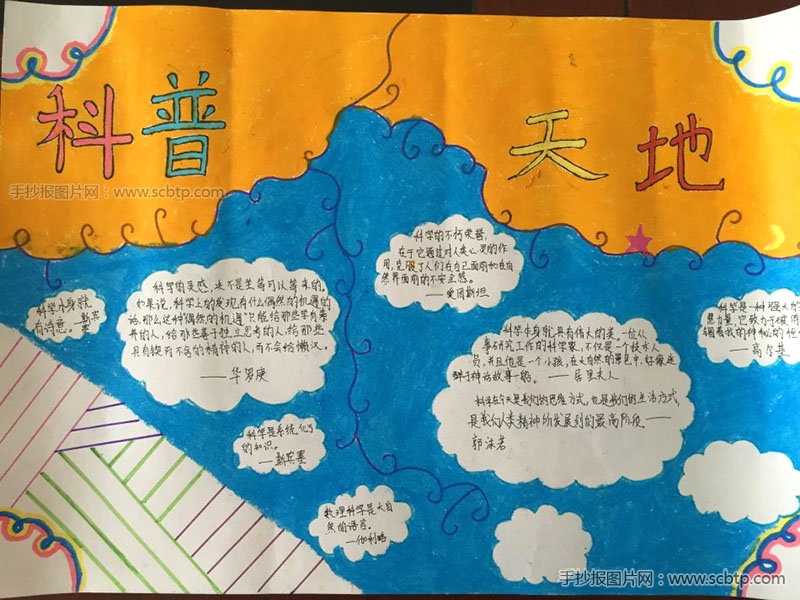 科普
天地
手抄报图片网:www.scbtp.com
科学本身就
有诗意。
科学的灵感,决不是坐等可以等来的。
如果说,科学上的发现有什么偶然的机遇的
话,那么这种“偶然的机遇”只能给那些学有素
养的人,给那些善于独立思考的人,给那些
具有锲而不舍的精神的人,而不会给懒汉。
——华罗庚
科学的不朽荣誉,
在于它通过对人类心灵的作
用,克服了人们在自己面前和在自
然界面前的不安全感。
——爱因斯坦
科学是一种强大的
——高尔基
科学本身就具有伟大的美。一位从
事研究工作的科学家,不仅是一个技术人
员,并且他是一个小孩,在大自然的景色中,好像迷
醉于神话故事一般。——居里夫人
科学在今天是我们的思维方式,也是我们的生活方式,
是我们人类精神所发展到的最高阶段。——
郭沫若
科学是系统化了
的知识。
——斯宾塞
数理科学是大自
然的语言。
——伽利略
手抄报图片网:www.scbtp.com